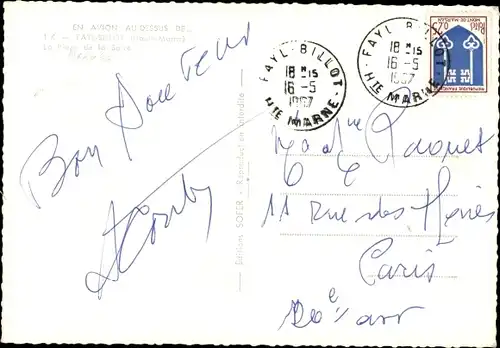 EN AVION AU-DESSUS DE...
FAYL-BILLOT (Haute-Marne)
La Place de la Barre
Bon Souvenir
Editions SOFER - Reproduction interdite
FAYL-BILLOT
18 H 15
16-5
1967
HTE MARNE
FAYL-BILLOT
18 H 15
16-5
1967
HTE MARNE
0,05
MONT-DE-MARSAN
REPUBLIQUE FRANÇAISE
11 Rue des
Paris
20e arr